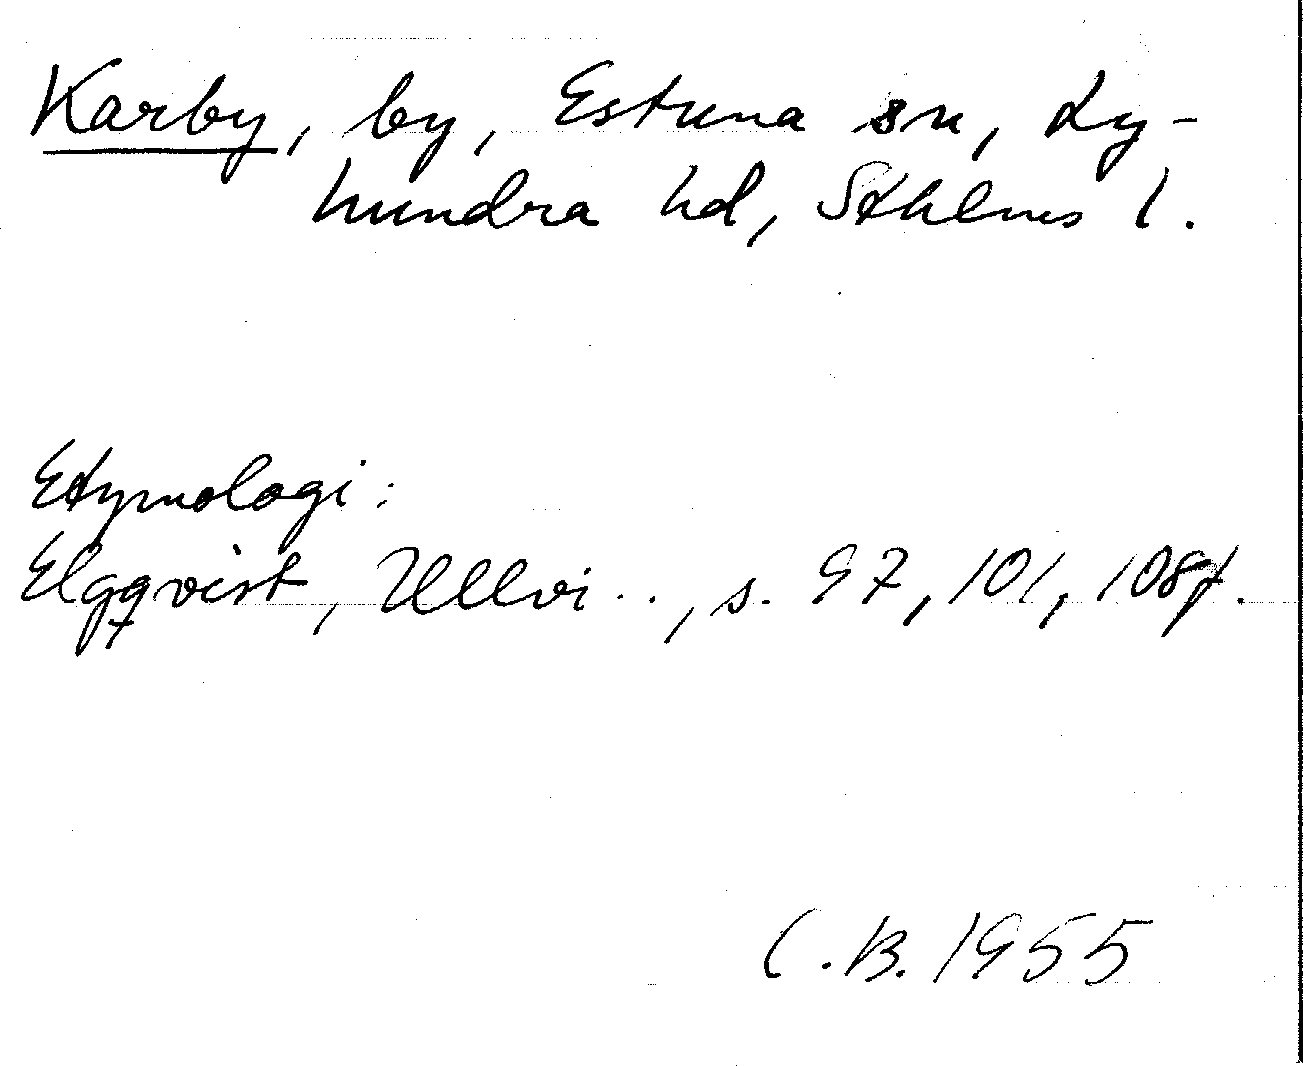 Karby, by, Estuna sn, Ly-
hundra hd, Sthlms l.
Etymologi:
Elgqvist, Ullvi . . , s. 97, 101, 108f.
C.B. 1955